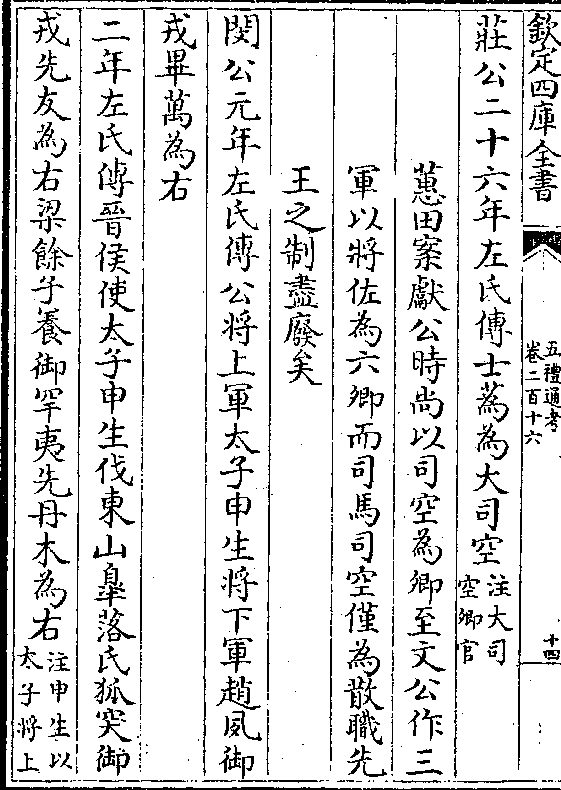 欽定四庫全書
五禮通考
卷二百十六
十四
莊公二十六年左氏傳士蒍為大司空注大司
空卿官
蕙田案獻公時尚以司空為卿至文公作三
軍以將佐為六卿而司馬司空僅為散職先
王之制盡廢矣
閔公元年左氏傳公將上軍太子申生將下軍趙夙御
戎畢萬為右
二年左氏傳晉侯使太子申生伐東山臯落氏狐突御
戎先友為右梁餘子養御罕夷先丹木為右注申生以
太子將上